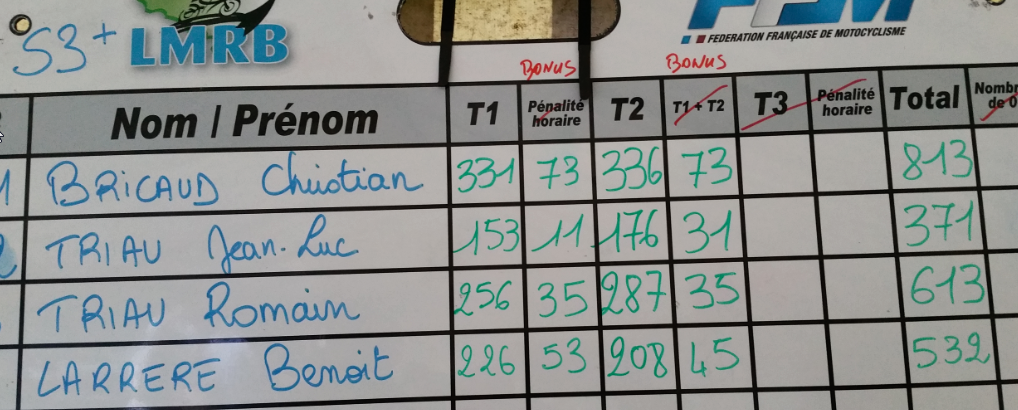 S3+ LMRB
FEDERATION FRANÇAISE DE MOTOCYCLISME
BONUS BONUS
Nom / Prénom T1 Pénalité horaire T2 T1 + T2 T3 Pénalité horaire Total Nombr de 0
BRICAUD Christian 331 73 336 73 813
TRIAU Jean-Luc 153 11 176 31 371
TRIAU Romain 256 35 287 35 613
LARRERE Benoit 226 53 208 45 532